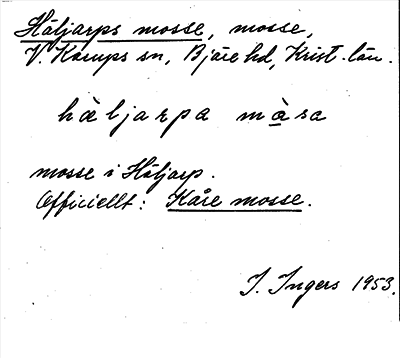 Häljarps mosse, mosse,
V. Karups sn, Bjäre hd, Krist. län.
häljarpa màsa
mosse i Häljarp.
Officiellt: Kåre mosse.
I. Ingers 1953.